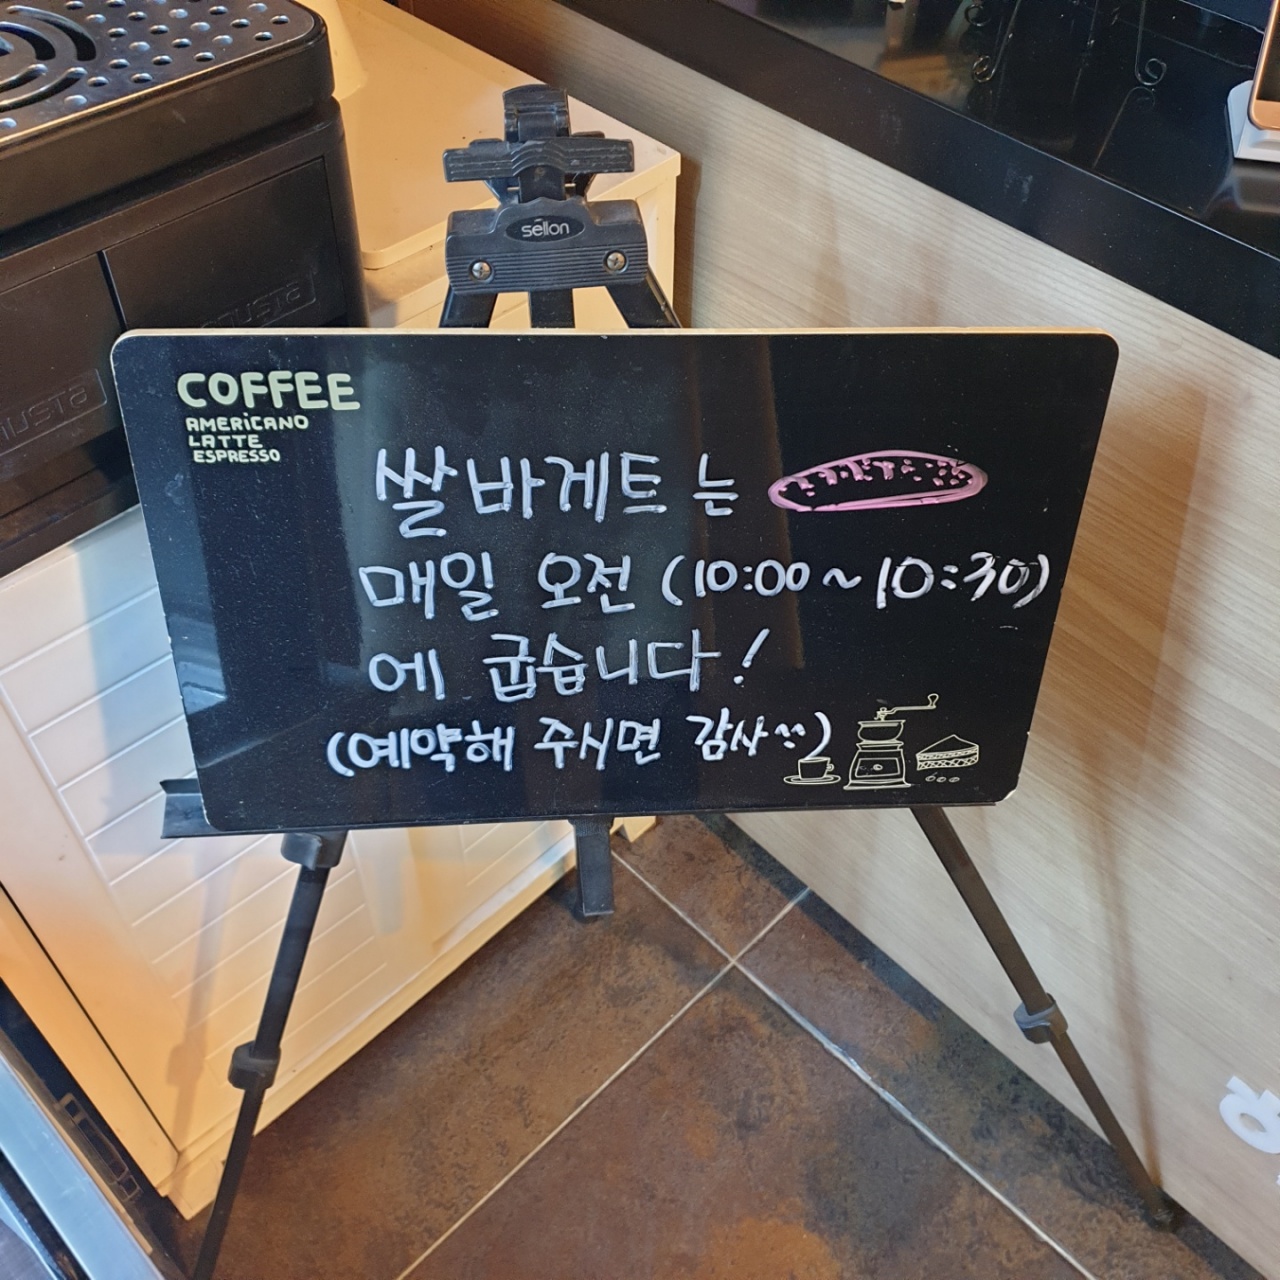 sellon
COFFEE
AMERICANO
LATTE
ESPRESSO
쌀바게트는
매일 오전 (10:00~10:30)
에 굽습니다!
(예약해 주시면 감사^^)